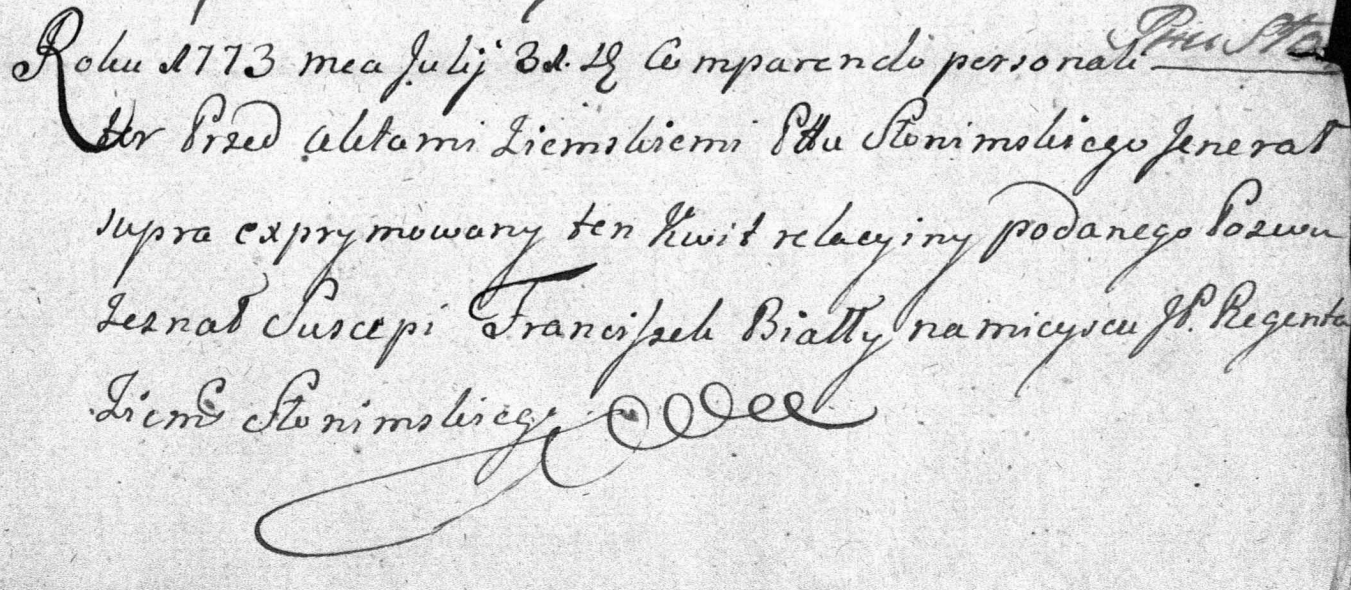 Roku 1773 mca Julij 31. D Comparendo personali
ter Przed aktami Ziemskiemi Pttu Słonimskiego Jenerał
supra exprymowany ten Kwit relacyiny podanego Pozwu
Zeznał Suscepi Franciszek Biallÿ na mieyscu JP. Regenta
Ziems Słonimskiego